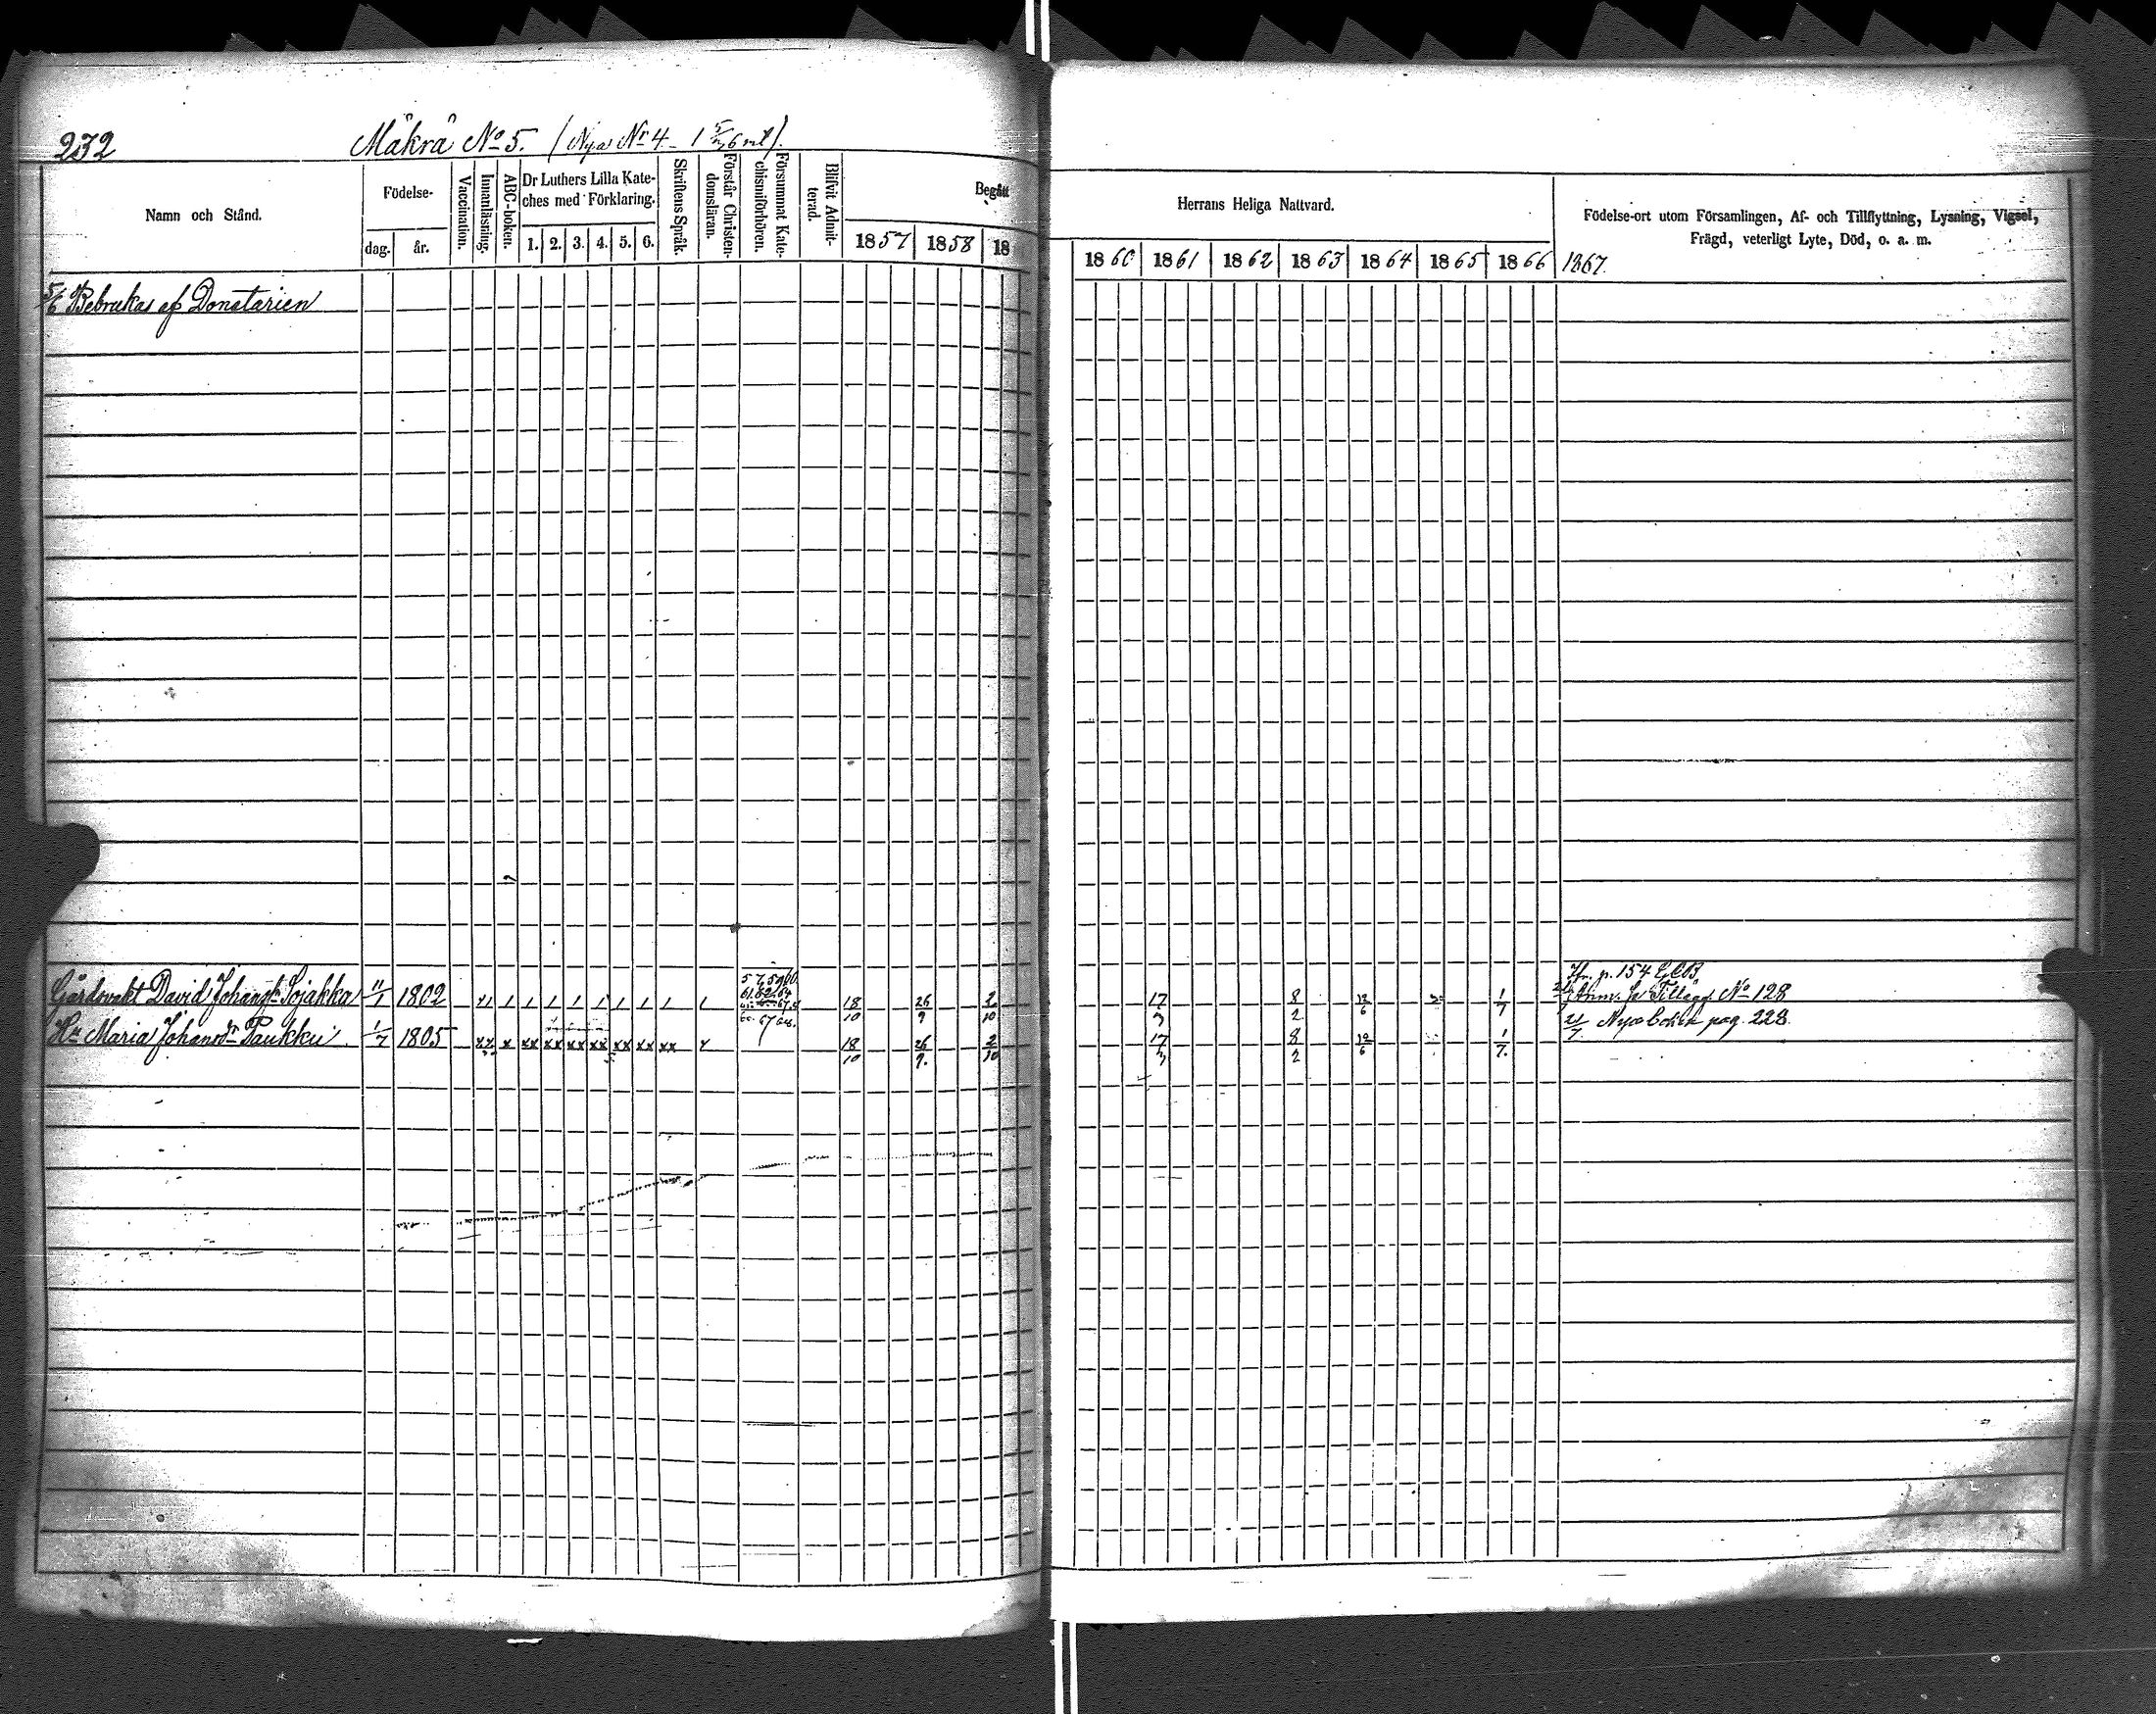 232
Mäkrä No 5. (Nya Nr 4 - 1 5/26 ml).
Namn och Stånd.
Födelse-
dag. år.
Vaccination.
Innanläsning.
ABC-boken.
Dr Luthers Lilla Kate-
ches med Förklaring.
1. 2. 3. 4. 5. 6.
Skriftens Språk.
Förstår Christen-
domsläran.
Försummat Kate-
chismiförhören.
Blifvit Admit-
terad.
Begått
1857 1858 18
Herrans Heliga Nattvard.
1860 1861 1862 1863 1864 1865 1866 1867.
Födelse-ort utom Församlingen, Af- och Tillflyttning, Lysning, Vigsel,
Frägd, veterligt Lyte, Död, o. a. m.
5/6 Bebrukas af Donatarien
Gårdsvakt David Johansn Sojakka 11/1 1802 x1 1 1 1 1 1 1 1 1 1 18/10 26/9 2/10 17 8/2 12/6 1/7 p. 154
Anm. Tillägg. No 128
Hu Maria Johansdr Paukku 1/7 1805 xx x xx xx xx xx xx xx xx x 18/10 26/9. 2/10 17 8/2 12/6 1/7. 21/7 Nya boken pag. 228.